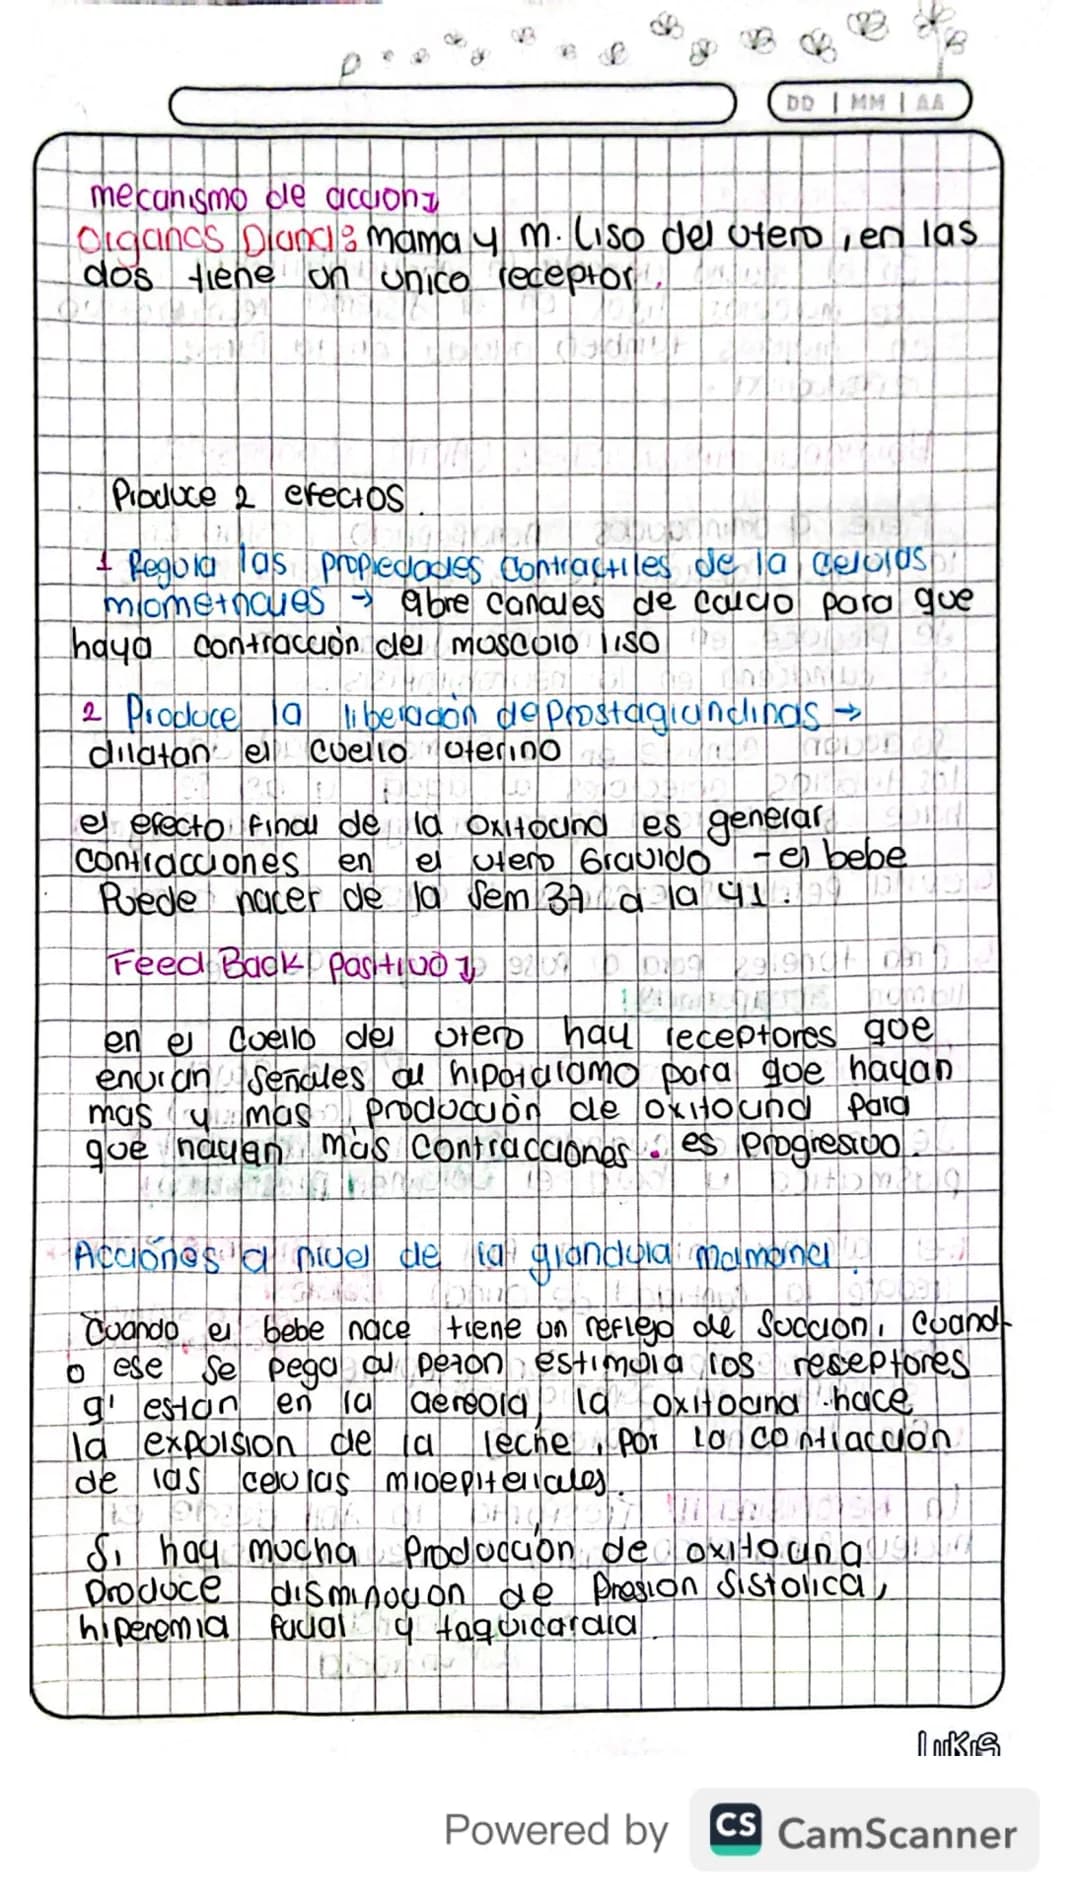 DD | MM | AA
mecanismo de accion
Organos Diana: mama y m. liso del utero, en las
dos tiene un unico receptor.
Produce 2 efectos
1 Regula las propiedades contractiles de la celulas
miometriales → abre canales de calcio para que
haya contracción del musculo liso
2 Produce la liberación de prostaglandinas →
dilatan el cuello uterino
el efecto final de la oxitocina es generar
contracciones en el utero Gravido - el bebe
Puede nacer de la sem 37 a la 41.
Feed Back Positivo
en el cuello del utero hay receptores que
envian señales al hipotalamo para que hayan
mas y mas producción de oxitocina para
que hayan más contracciones. es progresivo.
Acciónes a nivel de la glandula mamaria
Cuando el bebe nace tiene un reflejo de succión, cuand
o ese se pega al pezon estimula los reseptores
q' estan en la aereola, la oxitocina hace
la expulsion de la leche, por la contracción
de las celulas mioepiteliales.
Si hay mucha Producción de oxitocina
Produce disminucion de Presion Sistolica,
hiperemia facial y taquicardia
Powered by CS CamScanner